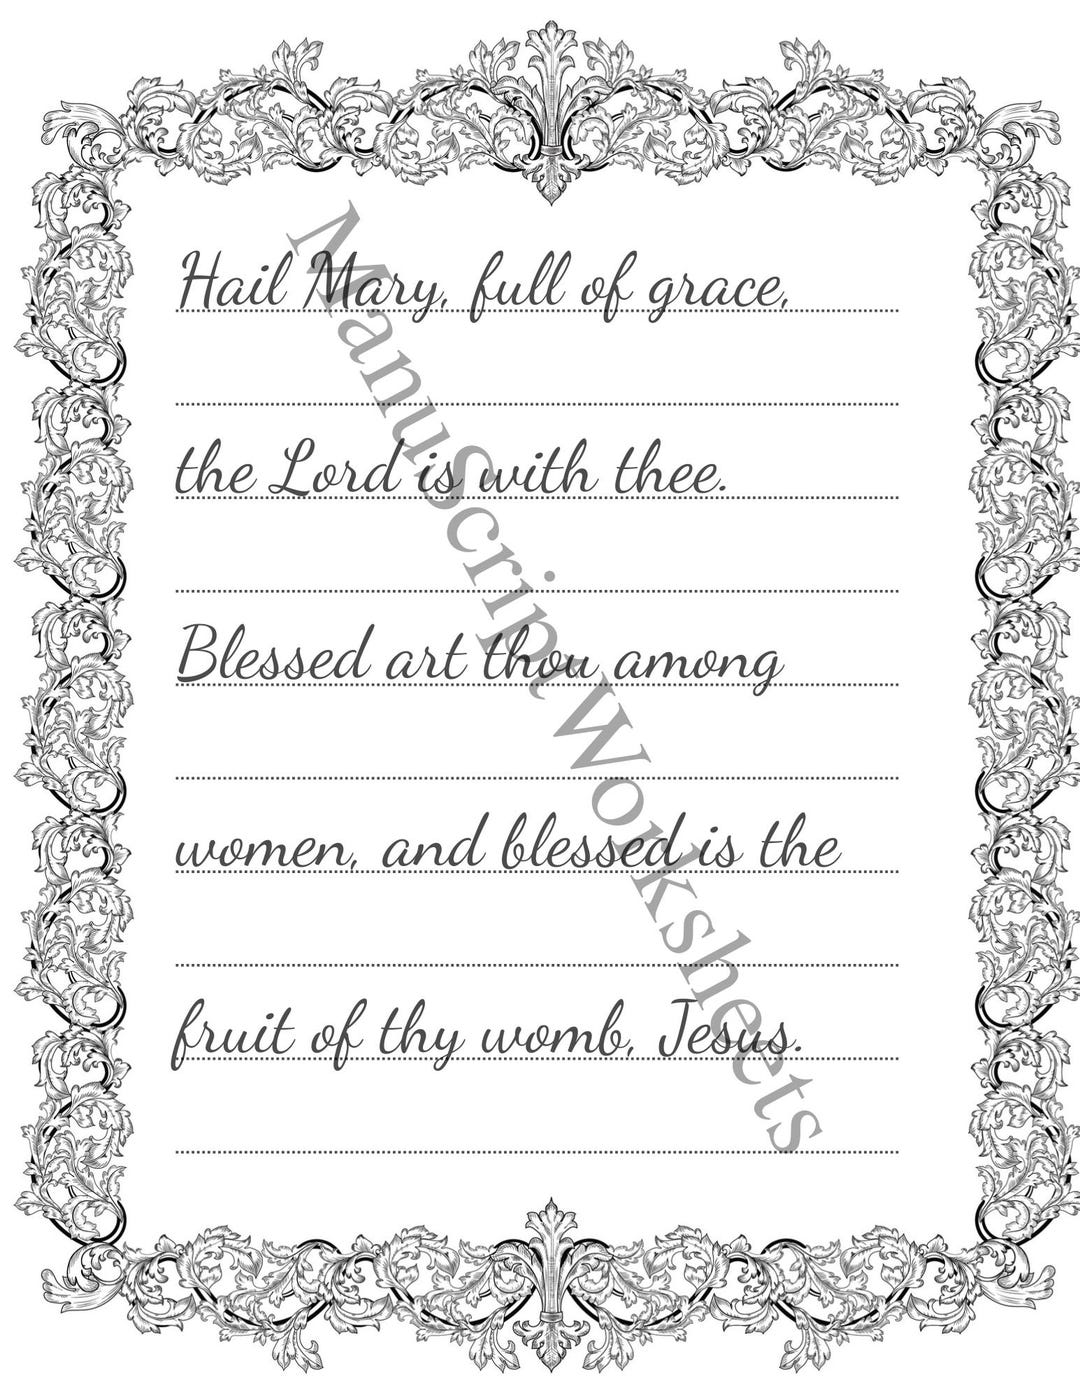 Hail Mary, full of grace,
the Lord is with thee.
Blessed art thou among
women, and blessed is the
fruit of thy womb, Jesus.
ManuScriptWorksheets